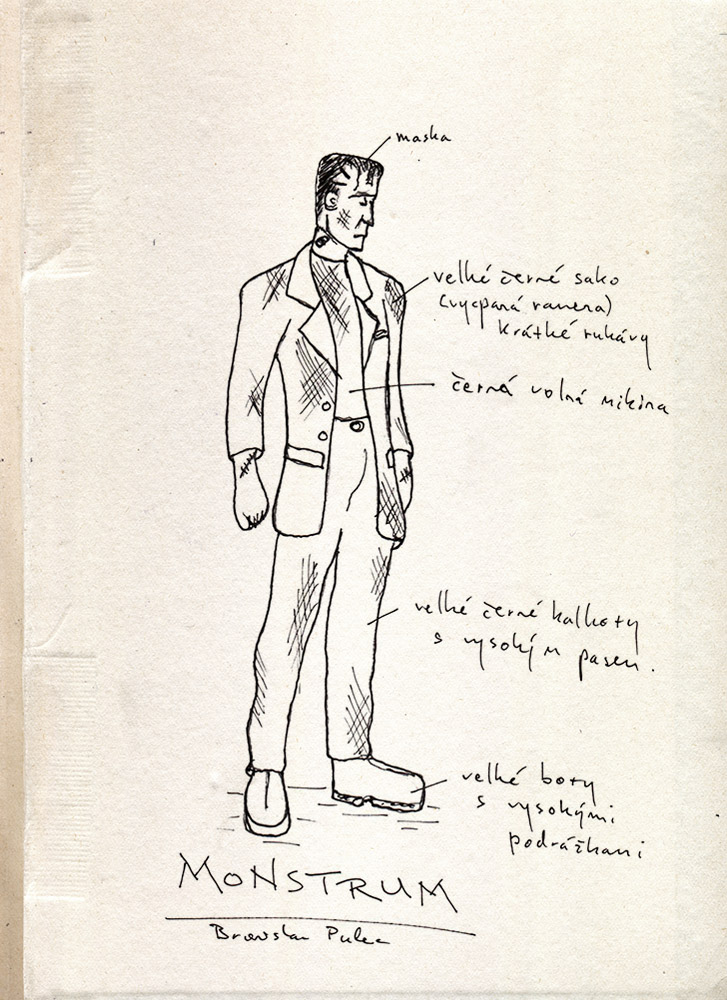 maska
velké černé sako
(vycpaná ramena)
krátké rukávy
černá volná mikina
velké černé kalhoty
s vysokým pasem.
velké boty
s vysokými
podrážkami
MONSTRUM